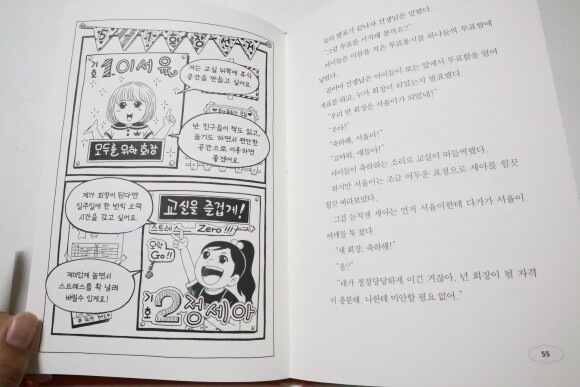 5-1 회장 선거
기호 1 이서윤
저는 교실 뒤쪽에 휴식
공간을 만들고 싶어요.
반 친구들이 책도 읽고,
놀기도 하면서 편안한
공간으로 이용하면
좋겠어요.
모두를 위한 회장
제가 회장이 된다면
일주일에 한 번씩 오락
시간을 갖고 싶어요.
교실을 즐겁게!
스트레스 Zero!!!
오락 Go!!
재미있게 놀면서
스트레스를 확 날려
버릴 수 있게요!
기호 2 정세아
둘의 발표가 끝나자 선생님은 말했다.
"그럼 투표를 시작해 볼까요?"
아이들은 이름을 적은 투표용지를 하나둘씩 투표함에
넣었다.
곧이어 선생님은 아이들이 보는 앞에서 투표함을 열어
개표를 하고, 누가 회장이 되었는지 발표했다.
"우리 반 회장은 서윤이가 되었네!"
"우아!"
"축하해, 서윤아!"
"고마워, 얘들아!"
아이들이 축하하는 소리로 교실이 떠들썩했다.
하지만 서윤이는 조금 어두운 표정으로 세아를 힐끗
힐끗 바라보았다.
그걸 눈치챈 세아는 먼저 서윤이한테 다가가 서윤이
어깨를 툭 쳤다.
"새 회장, 축하해!"
"응?"
"네가 정정당당하게 이긴 거잖아. 넌 회장이 될 자격
이 충분해. 나한테 미안할 필요 없어."
55